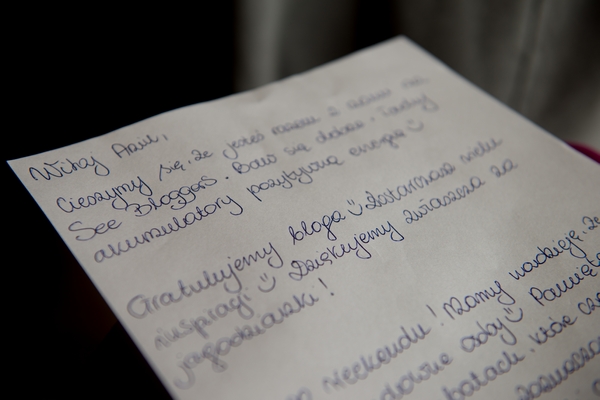 Witaj Aniu,
Cieszymy się, że jesteś razem z nami na
See Bloggers. Baw się dobrze i ładuj
akumulatory pozytywną energią
Gratulujemy bloga dostarczasz wielu
inspiracji Dziękujemy zwłaszcza za
jagodzianki!
weekendu! Mamy nadzieję, że
osoby Pamięta
butach, które